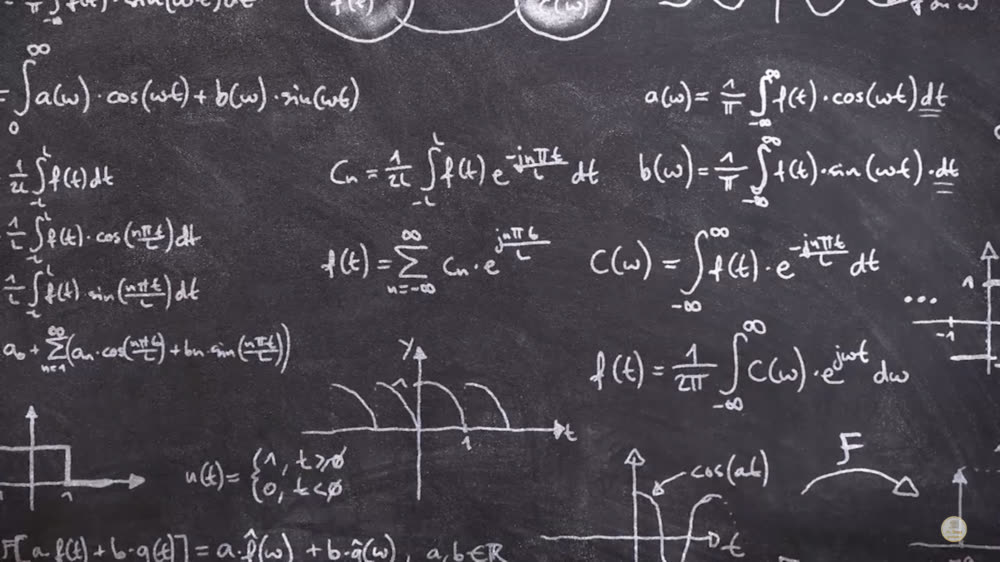 f(t)
C(ω)
= ∫₀^∞ a(ω) · cos(ωt) + b(ω) · sin(ωt)
a(ω) = 1/π ∫_{-∞}^{∞} f(t) · cos(ωt) dt
1/2L ∫_{-L}^{L} f(t) dt
Cn = 1/2L ∫_{-L}^{L} f(t) e^{-jnπt/L} dt
b(ω) = 1/π ∫_{-∞}^{∞} f(t) · sin(ωt) · dt
1/L ∫_{-L}^{L} f(t) · cos(nπt/L) dt
f(t) = ∑_{n=-∞}^{∞} Cn · e^{jnπt/L}
C(ω) = ∫_{-∞}^{∞} f(t) · e^{-jnπt/L} dt
1/L ∫_{-L}^{L} f(t) · sin(nπt/L) dt
1
...
-1
a₀ + ∑_{n=1}^{∞} (an · cos(nπt/L) + bn · sin(nπt/L))
f(t) = 1/2π ∫_{-∞}^{∞} C(ω) · e^{jωt} dω
y
1
1
t
1
u(t) = {1, t ≥ 0
{0, t < 0
cos(at)
t
F
F[a · f(t) + b · g(t)] = a · f̂(ω) + b · ĝ(ω), a, b ∈ ℝ